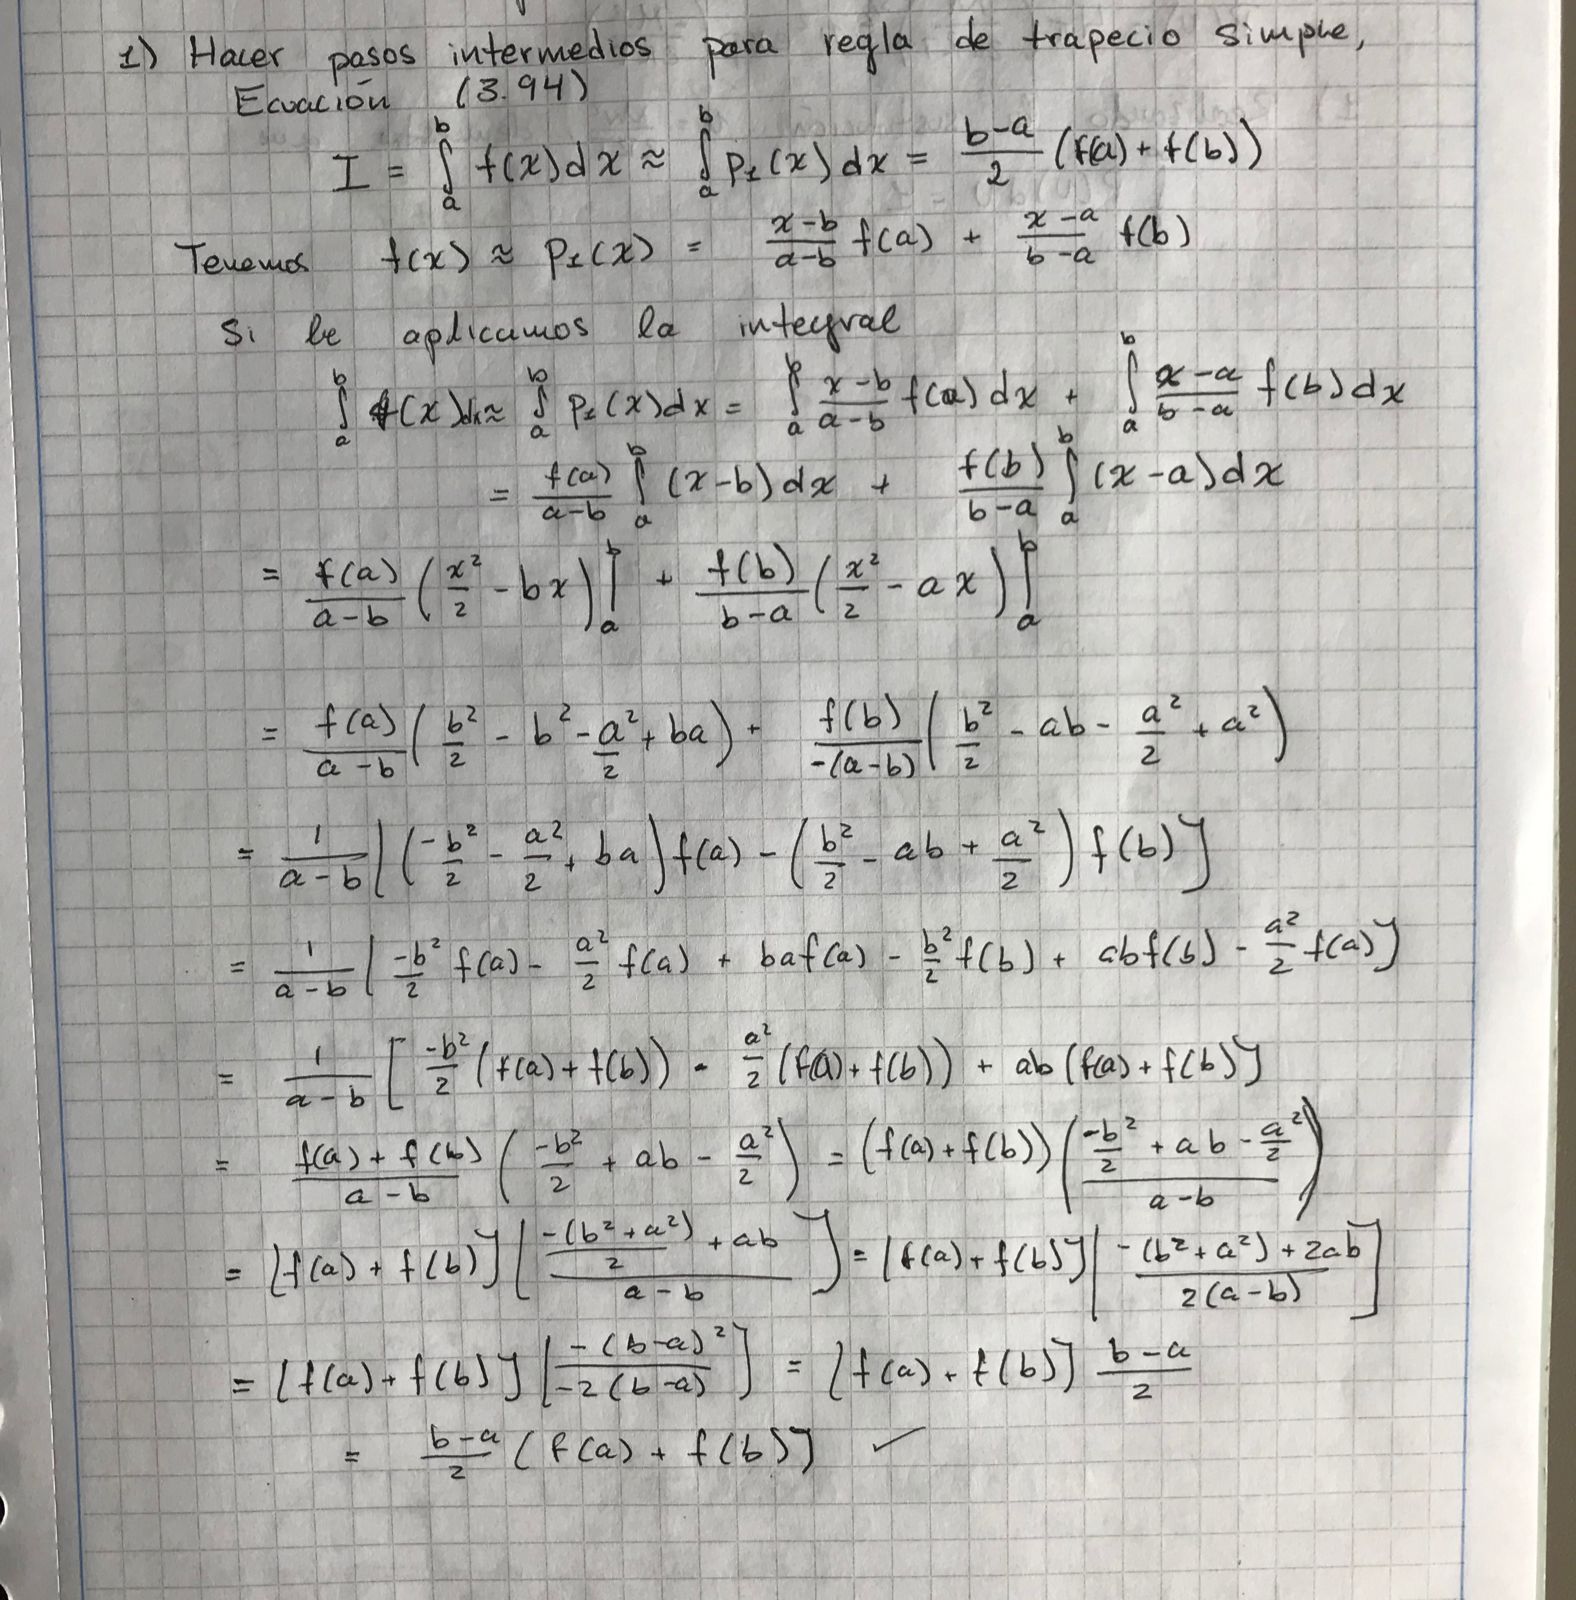 1) Hacer pasos intermedios para regla de trapecio simple,
Ecuación (3.94)
I = ∫_a^b f(x)dx ≈ ∫_a^b p₁(x)dx = (b-a)/2 (f(a) + f(b))
Tenemos f(x) ≈ p₁(x) = (x-b)/(a-b) f(a) + (x-a)/(b-a) f(b)
Si le aplicamos la integral
∫_a^b f(x)dx ≈ ∫_a^b p₁(x)dx = ∫_a^b (x-b)/(a-b) f(a)dx + ∫_a^b (x-a)/(b-a) f(b)dx
= f(a)/(a-b) ∫_a^b (x-b)dx + f(b)/(b-a) ∫_a^b (x-a)dx
= f(a)/(a-b) (x²/2 - bx)|_a^b + f(b)/(b-a) (x²/2 - ax)|_a^b
= f(a)/(a-b) (b²/2 - b² - a²/2 + ba) + f(b)/(-(a-b)) (b²/2 - ab - a²/2 + a²)
= 1/(a-b) [(-b²/2 - a²/2 + ba) f(a) - (b²/2 - ab + a²/2) f(b)]
= 1/(a-b) [-b²/2 f(a) - a²/2 f(a) + baf(a) - b²/2 f(b) + abf(b) - a²/2 f(a)]
= 1/(a-b) [-b²/2 (f(a) + f(b)) - a²/2 (f(a) + f(b)) + ab (f(a) + f(b)]
= (f(a) + f(b))/(a-b) (-b²/2 + ab - a²/2) = (f(a) + f(b)) ((-b²/2 + ab - a²/2)/(a-b))
= [f(a) + f(b)] [(-(b² + a²)/2 + ab)/(a-b)] = [f(a) + f(b)] [(-(b² + a²) + 2ab)/(2(a-b))]
= [f(a) + f(b)] [-(b-a)²/(-2(b-a))] = [f(a) + f(b)] (b-a)/2
= (b-a)/2 (f(a) + f(b)] ✓